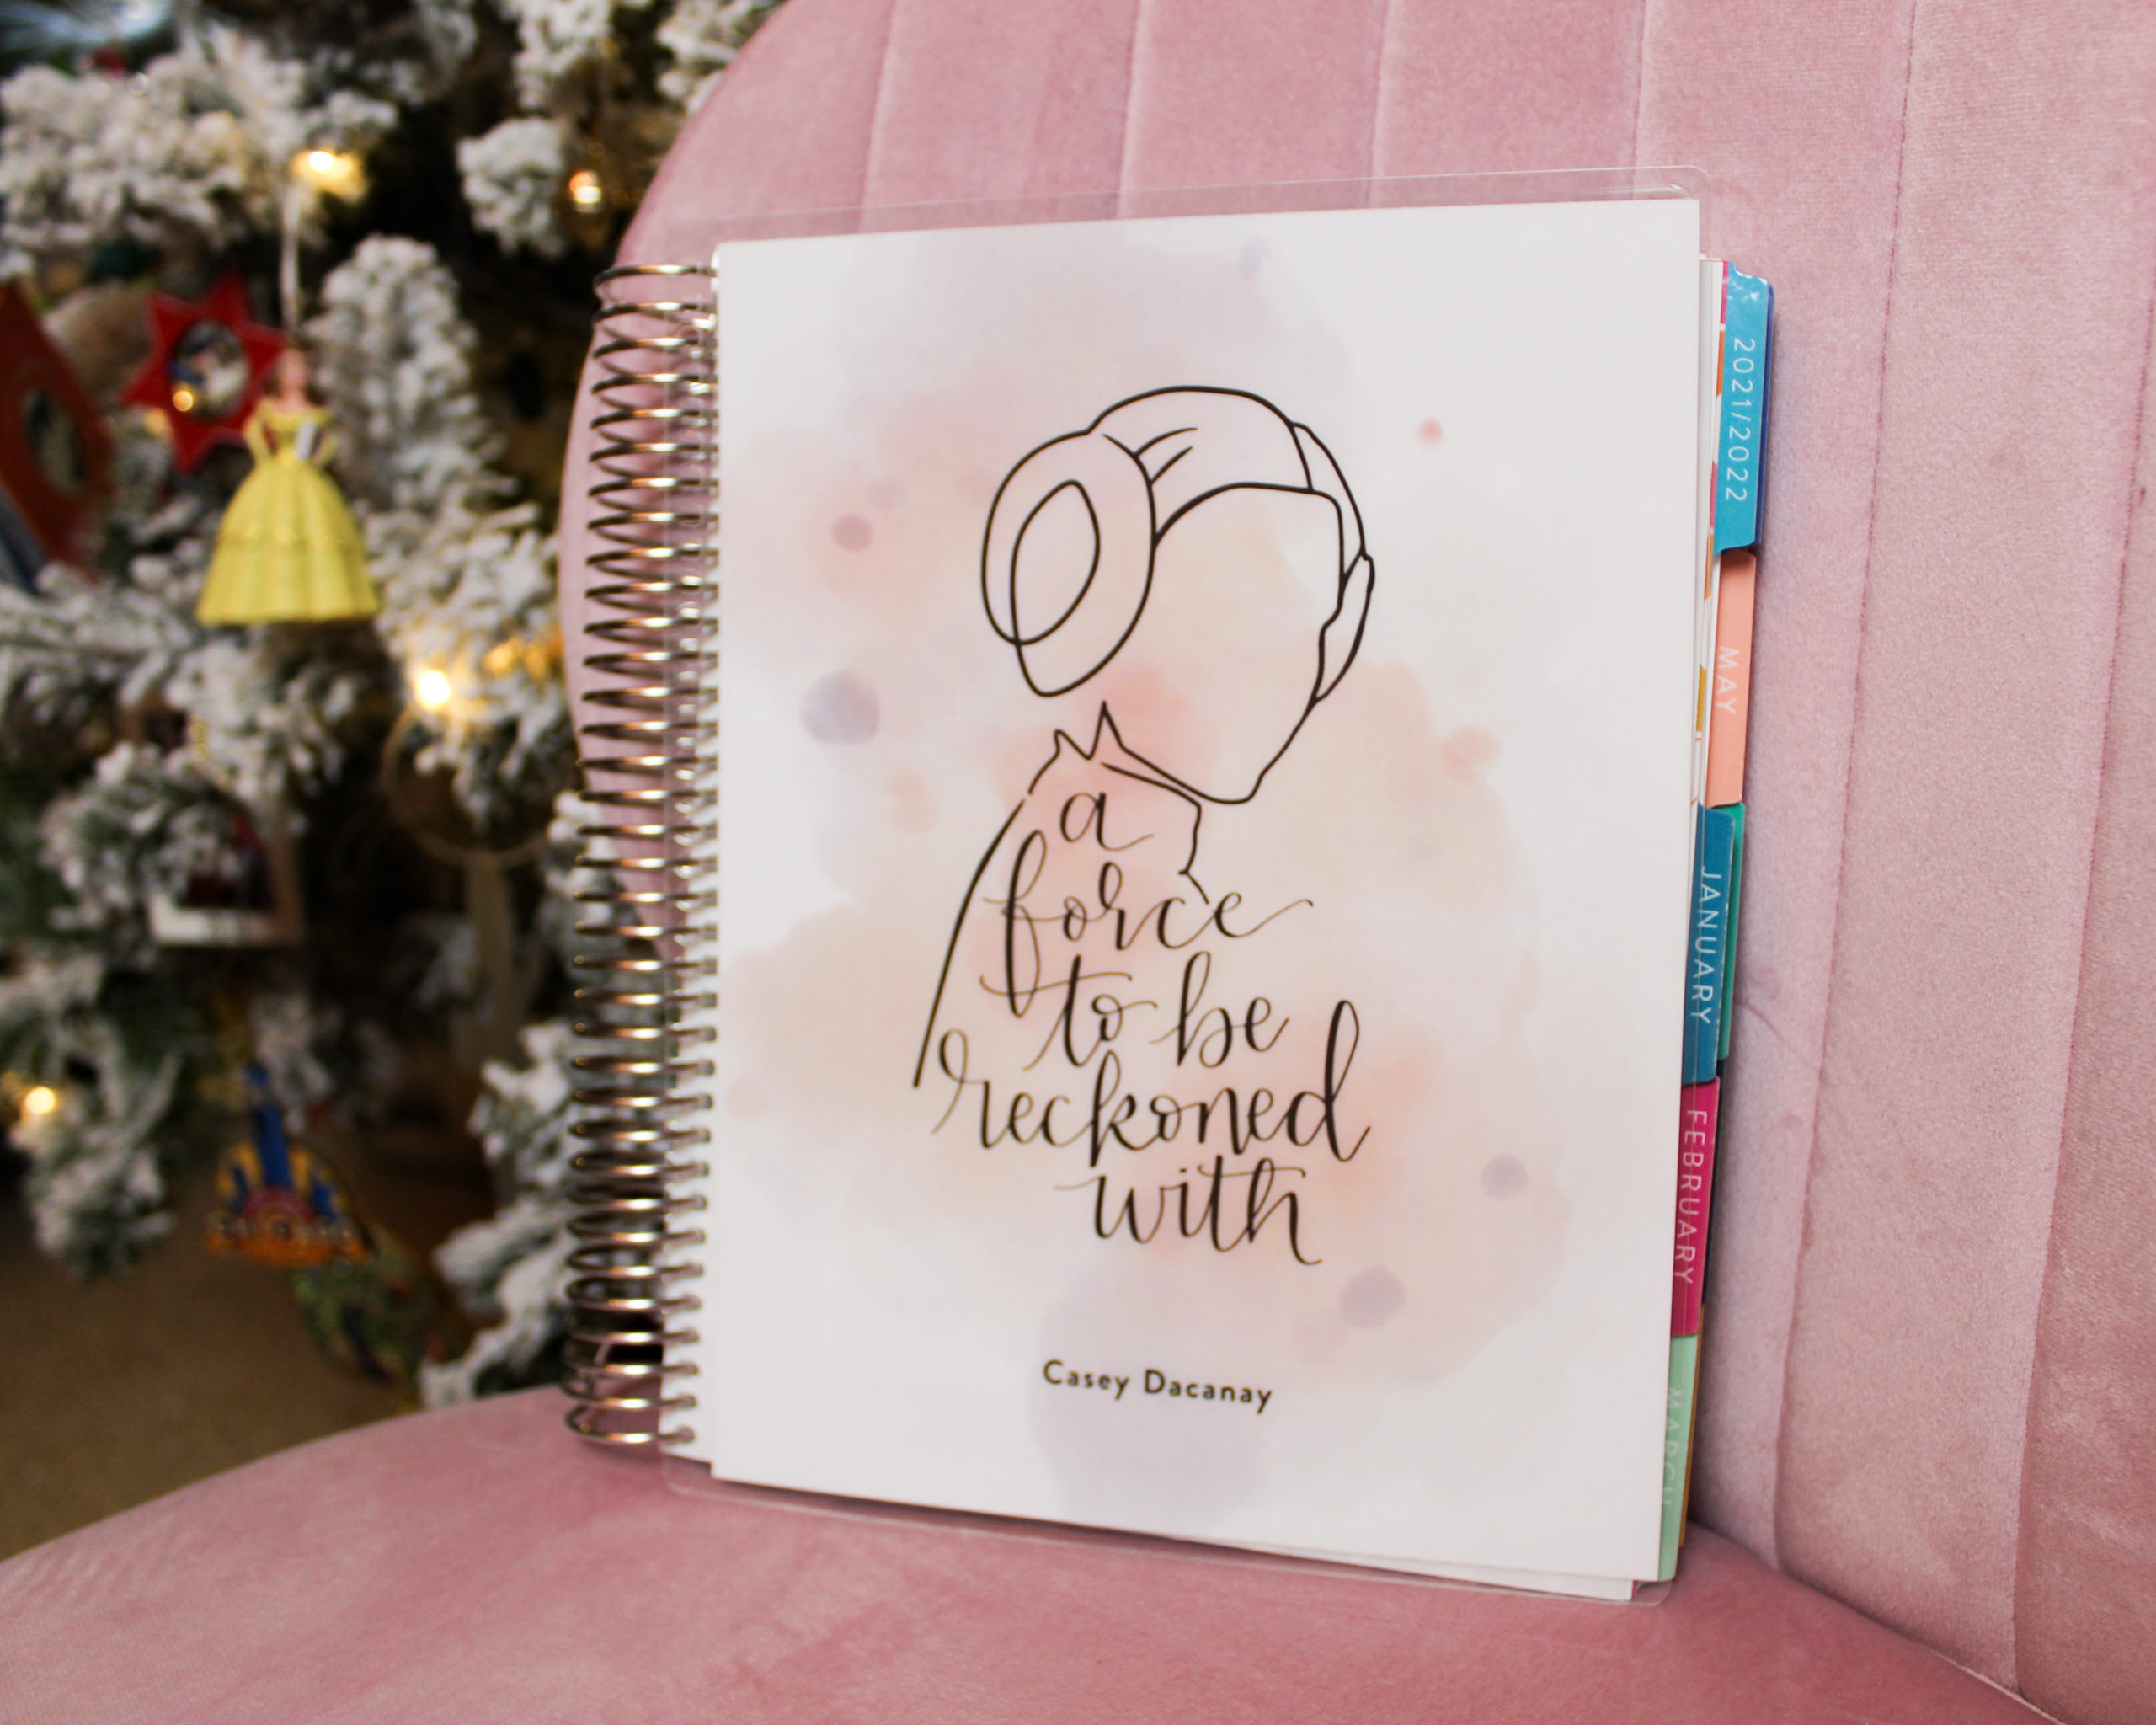 a
force
to be
reckoned
with
Casey Dacanay
2021/2022
MAY
JANUARY
FEBRUARY
MARCH